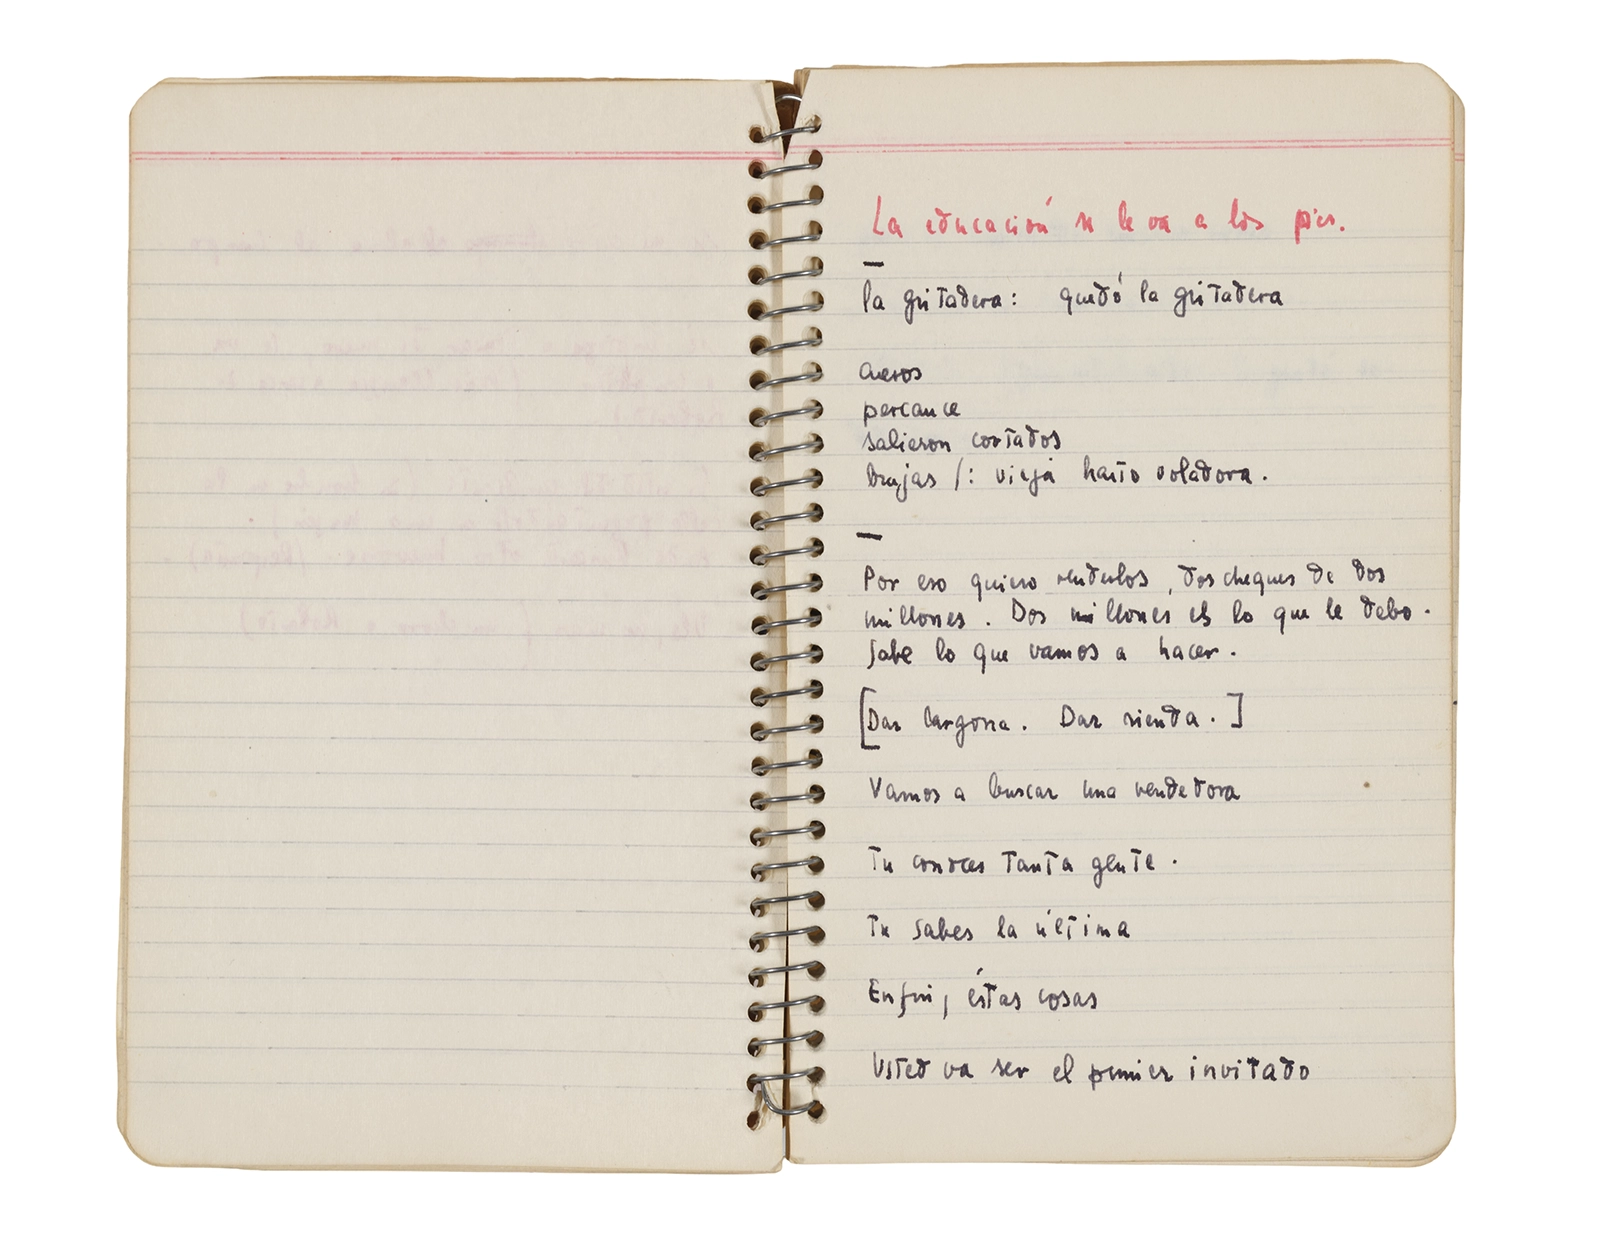 La educación se le va a los pies.
—
la gritadera: quedó la gritadera
cueros
percance
salieron cortados
brujas /: vieja harto voladora.
—
Por eso quiero venderlos, dos cheques de dos
millones. Dos millones es lo que le debo.
Sabe lo que vamos a hacer.
[Dar largona. Dar rienda.]
Vamos a buscar una vendedora
Tu conoces tanta gente.
Tu sabes la última
En fin, éstas cosas
Usted va ser el primier invitado